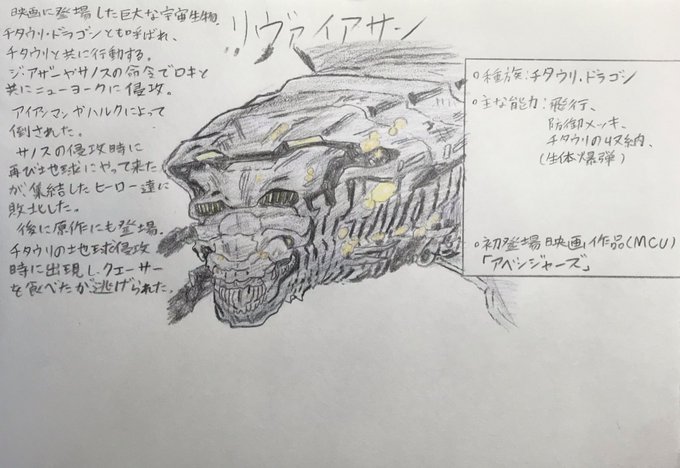 リヴァイアサン
映画に登場した巨大な宇宙生物.
チタウリ・ドラゴンとも呼ばれ、
チタウリと共に行動する。
ジ・アザーやサノスの命令でロキと
共にニューヨークに侵攻。
アイアンマンやハルクによって
倒された。
サノスの侵攻時に
再び地球にやって来た
が、集結したヒーロー達に
敗北した。
後に原作にも登場.
チタウリの地球侵攻
時に出現し、クエーサー
を食べたが逃げられた。
○種族:チタウリ・ドラゴン
○主な能力:飛行、
防御メッキ、
チタウリの収納、
(生体爆弾)
○初登場映画作品(MCU)
「アベンジャーズ」